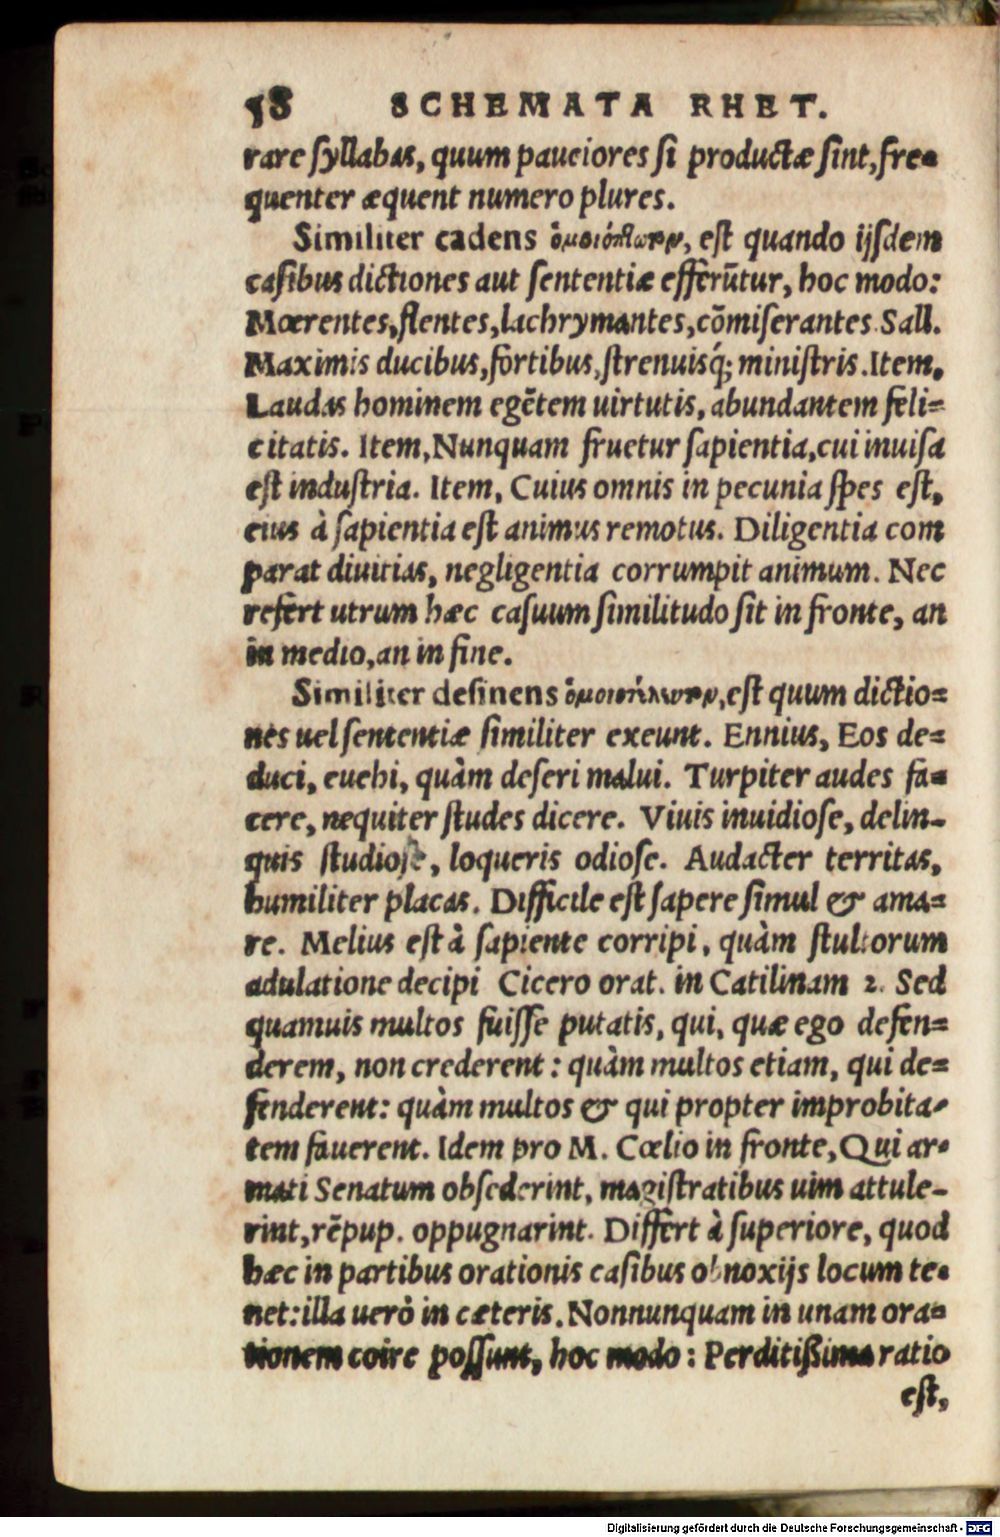 58 SCHEMATA RHET.
rare ſyllabas, quum pauciores ſi productæ ſint, fre=
quenter æquent numero plures.
Similiter cadens ὁμοιόπτωτον, eſt quando ijſdem
caſibus dictiones aut ſententiæ efferūtur, hoc modo:
Mœrentes, flentes, lachrymantes, cōmiſerantes. Sall.
Maximis ducibus, fortibus, ſtrenuisq́; miniſtris. Item,
Laudas hominem egētem uirtutis, abundantem feli=
citatis. Item, Nunquam fruetur ſapientia, cui inuiſa
eſt induſtria. Item, Cuius omnis in pecunia ſpes eſt,
eius à ſapientia eſt animus remotus. Diligentia com
parat diuitias, negligentia corrumpit animum. Nec
refert utrum hæc caſuum ſimilitudo ſit in fronte, an
in medio, an in fine.
Similiter deſinens ὁμοιοτέλευτον, eſt quum dictio=
nes uel ſententiæ ſimiliter exeunt. Ennius, Eos de=
duci, euehi, quàm deſeri malui. Turpiter audes fa=
cere, nequiter ſtudes dicere. Viuis inuidioſe, delin-
quis ſtudioſe, loqueris odioſe. Audacter territas,
humiliter placas. Difficile eſt ſapere ſimul & ama=
re. Melius eſt à ſapiente corripi, quàm ſtultorum
adulatione decipi Cicero orat. in Catilinam 2. Sed
quamuis multos fuiſſe putatis, qui, quæ ego defen=
derem, non crederent: quàm multos etiam, qui de=
fenderent: quàm multos & qui propter improbita-
tem fauerent. Idem pro M. Cœlio in fronte, Qui ar-
mati Senatum obſederint, magiſtratibus uim attule-
rint, rēpup. oppugnarint. Differt à ſuperiore, quod
hæc in partibus orationis caſibus obnoxijs locum te-
net: illa uerò in cæteris. Nonnunquam in unam ora=
tionem coire poſſunt, hoc modo: Perditißima ratio
eſt,
Digitalisierung gefördert durch die Deutsche Forschungsgemeinschaft - DFG